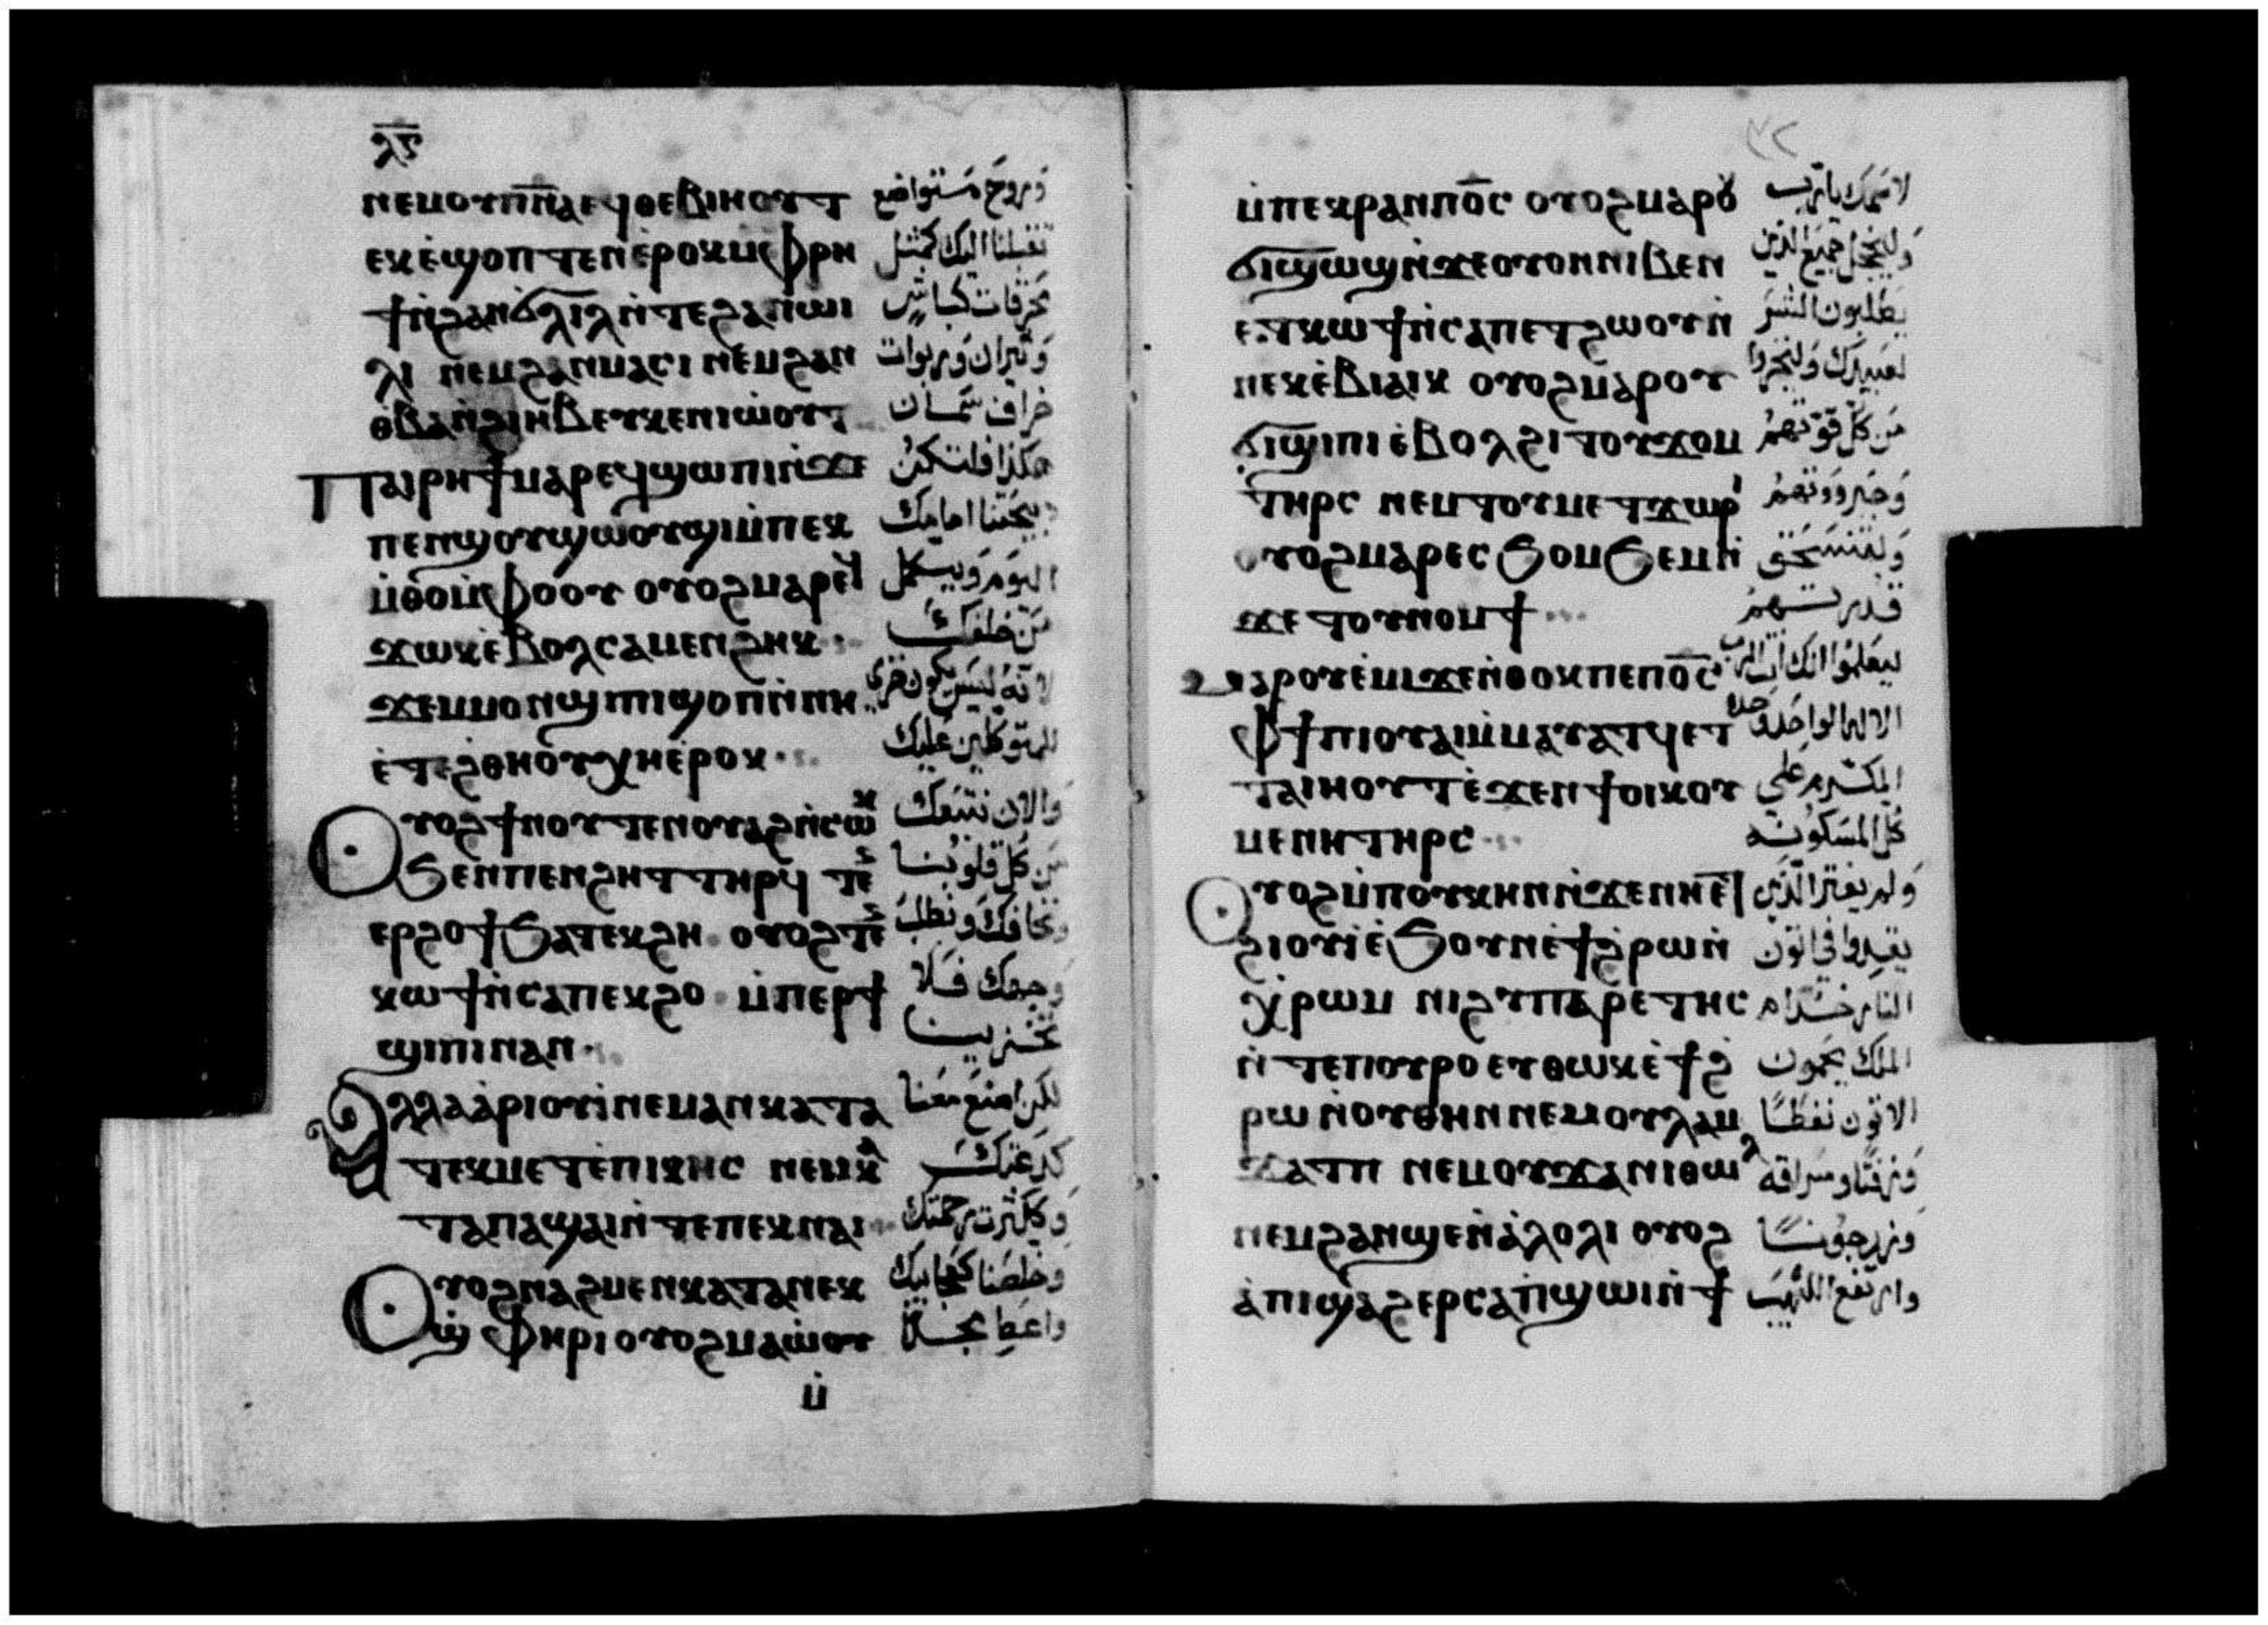 ⲗⲋ
ⲛⲉⲙⲟⲩⲡ̅ⲛ̅ⲁⲉϥⲑⲉⲃⲓⲏⲟⲩⲧ وبروح متواضع
ⲉⲕⲉ̀ϣⲟⲡⲧⲉⲛⲉ̀ⲣⲟⲕⲙ̀ⲫⲣⲏ تقبلنا اليك كمثل
ϯⲛ̀ϩⲁⲛϭⲗⲓⲗⲛ̀ⲧⲉϩⲁⲛⲱⲓ محرقات كباش
ⲗⲓ ⲛⲉⲙϩⲁⲛⲙⲁⲥⲓ ⲛⲉⲙϩⲁⲛ وثيران وربوات
ⲑ̀ⲃⲁⲛ̀ϩⲓⲏⲃⲉⲩⲕⲉⲛⲓⲱ̀ⲟⲩⲧ خراف سمان
Ⲡⲁⲓⲣⲏϯⲙⲁⲣⲉϥϣⲱⲡⲓⲛ̀ϫⲉ هكذا فلتكن
ⲡⲉⲛϣⲟⲩϣⲱⲟⲩϣⲓⲙ̀ⲡⲉⲕ ذبيحتنا امامك
ⲙ̀ⲑⲟⲙ̀ⲫⲟⲟⲩ ⲟⲩⲟϩⲙⲁⲣⲉϥ اليوم ويكمل
ϫⲱⲕⲉ̀ⲃⲟⲗⲥⲁⲙⲉⲛϩⲏⲕ من خلفك
ϫⲉⲙⲙⲟⲛϣⲓⲡⲓϣⲟⲡⲛ̀ⲛⲏ لانه ليس يكون خزي
ⲉ̀ⲧⲉϩⲑⲏⲟⲩⲭⲏⲉ̀ⲣⲟⲕ للمتوكلين عليك
Ⲟⲩⲟϩϯⲛⲟⲩⲧⲉⲛⲟⲩⲁϩⲛ̀ⲥⲱⲕ والان نتبعك
ϧⲉⲛⲡⲉⲛϩⲏⲧⲧⲏⲣϥ ⲧⲉⲛ من كل قلوبنا
ⲉⲣϩⲟϯϧⲁⲧⲉⲕϩⲏ ⲟⲩⲟϩⲧⲉⲛ ونخافك ونطلب
ⲕⲱϯⲛ̀ⲥⲁⲡⲉⲕϩⲟ ⲙ̀ⲡⲉⲣϯ وجهك فلا
ϣⲓⲡⲓⲛⲁⲛ تخزينا
Ⲁⲗⲗⲁⲁ̀ⲣⲓⲟⲩⲓ̀ⲛⲉⲙⲁⲛⲕⲁⲧⲁ لكن اصنع معنا
ⲧⲉⲕⲙⲉⲧⲉ̀ⲡⲓⲕⲏⲥ ⲛⲉⲙⲕⲁ كدعتك
ⲧⲁⲡⲁϣⲁⲓⲛ̀ⲧⲉⲡⲉⲕⲛⲁⲓ وككثرت رحمتك
Ⲟⲩⲟϩⲛⲁϩⲙⲉⲛⲕⲁⲧⲁⲛⲉⲕ وخلصنا كعجايبك
ϣ̀ⲫⲏⲣⲓ ⲟⲩⲟϩⲙⲁⲱ̀ⲟⲩ واعط مجدا
ⲙ̀
ⲙ̀ⲡⲉⲕⲣⲁⲛⲡⲟ̅ⲥ ⲟⲩⲟϩⲙⲁⲣⲟⲩ لاسمك يا رب
ϭⲓϣⲱϣⲛ̀ϫⲉⲟⲩⲟⲛⲛⲓⲃⲉⲛ وليخجل جميع الذين
ⲉⲧⲕⲱϯⲛ̀ⲥⲁⲡⲉⲧϩⲱⲟⲩⲛ̀ يطلبون الشر
ⲛⲉⲕⲉ̀ⲃⲓⲁⲓⲕ ⲟⲩⲟϩⲙⲁⲣⲟⲩ لعبيدك وليخزوا
ϭⲓϣⲓⲡⲓⲉ̀ⲃⲟⲗϩⲓⲧⲟⲩϫⲟⲙ من كل قوتهم
ⲧⲏⲣⲥ ⲛⲉⲙⲧⲟⲩⲙⲉⲧϫⲱⲣⲓ وجبروتهم
ⲟⲩⲟϩⲙⲁⲣⲉⲥϧⲟⲙϧⲉⲙⲛ̀ ولتنسحق
ϫⲉⲧⲟⲩⲛⲟⲙϯ قدرتهم
ⲙⲁⲣⲟⲩⲉ̀ⲙⲓϫⲉⲛ̀ⲑⲟⲕⲡⲉⲡⲟ̅ⲥ ليعلموا انك انت الرب
ⲫϯⲡⲓⲟⲩⲁⲓⲙ̀ⲙⲁⲩⲁⲧϥⲉⲧ الاله الواحد وحده
ⲧⲁⲓⲏⲟⲩⲧⲉ̀ϫⲉⲛϯⲟⲓⲕⲟⲩ المكرم على
ⲙⲉⲛⲏⲧⲏⲣⲥ كل المسكونه
Ⲟⲩⲟϩⲙ̀ⲡⲟⲩⲕⲏⲛⲛ̀ϫⲉⲛⲏⲉ̀ ولم يفتر الذين
ϩⲓⲟⲩⲓ̀ⲉ̀ϧⲟⲩⲛⲉ̀ϯϩ̀ⲣⲱⲛ̀ يقدوا في اتون
ⲭ̀ⲣⲱⲙ ⲛⲓϩⲩⲡⲁⲣⲉⲧⲏⲥ النار خدام
ⲛ̀ⲧⲉⲡⲓⲟⲩⲣⲟ ⲉⲩⲑⲱⲕⲉ̀ϯϩ̀ الملك يحمون
ⲣⲱ ⲛ̀ⲟⲩⲑⲏⲛ ⲛⲉⲙⲟⲩⲗⲁⲙ الاتون نفطا
ϫⲁⲧⲡ ⲛⲉⲙⲟⲩϫⲁⲛⲓⲑⲱⲗ وزفتا وسراقه
ⲛⲉⲙϩⲁⲛϣⲉⲛⲁ̀ⲗⲟⲗⲓ ⲟⲩⲟϩ وزرجونا
ⲁ̀ⲡⲓϣⲁϩⲉⲣⲥⲁⲡ̀ϣⲱⲓⲛ̀ϯ وارتفع اللهيب